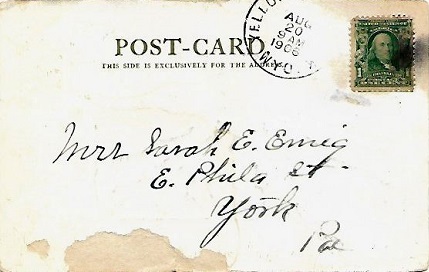 POST-CARD.
THIS SIDE IS EXCLUSIVELY FOR THE ADDRESS.
AUG
20
9 AM
1906
1
Mrs Sarah E. Emig
E. Phila St.
York
Pa